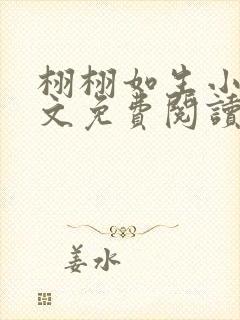 栩栩如生小
文免費閱讀
姜水